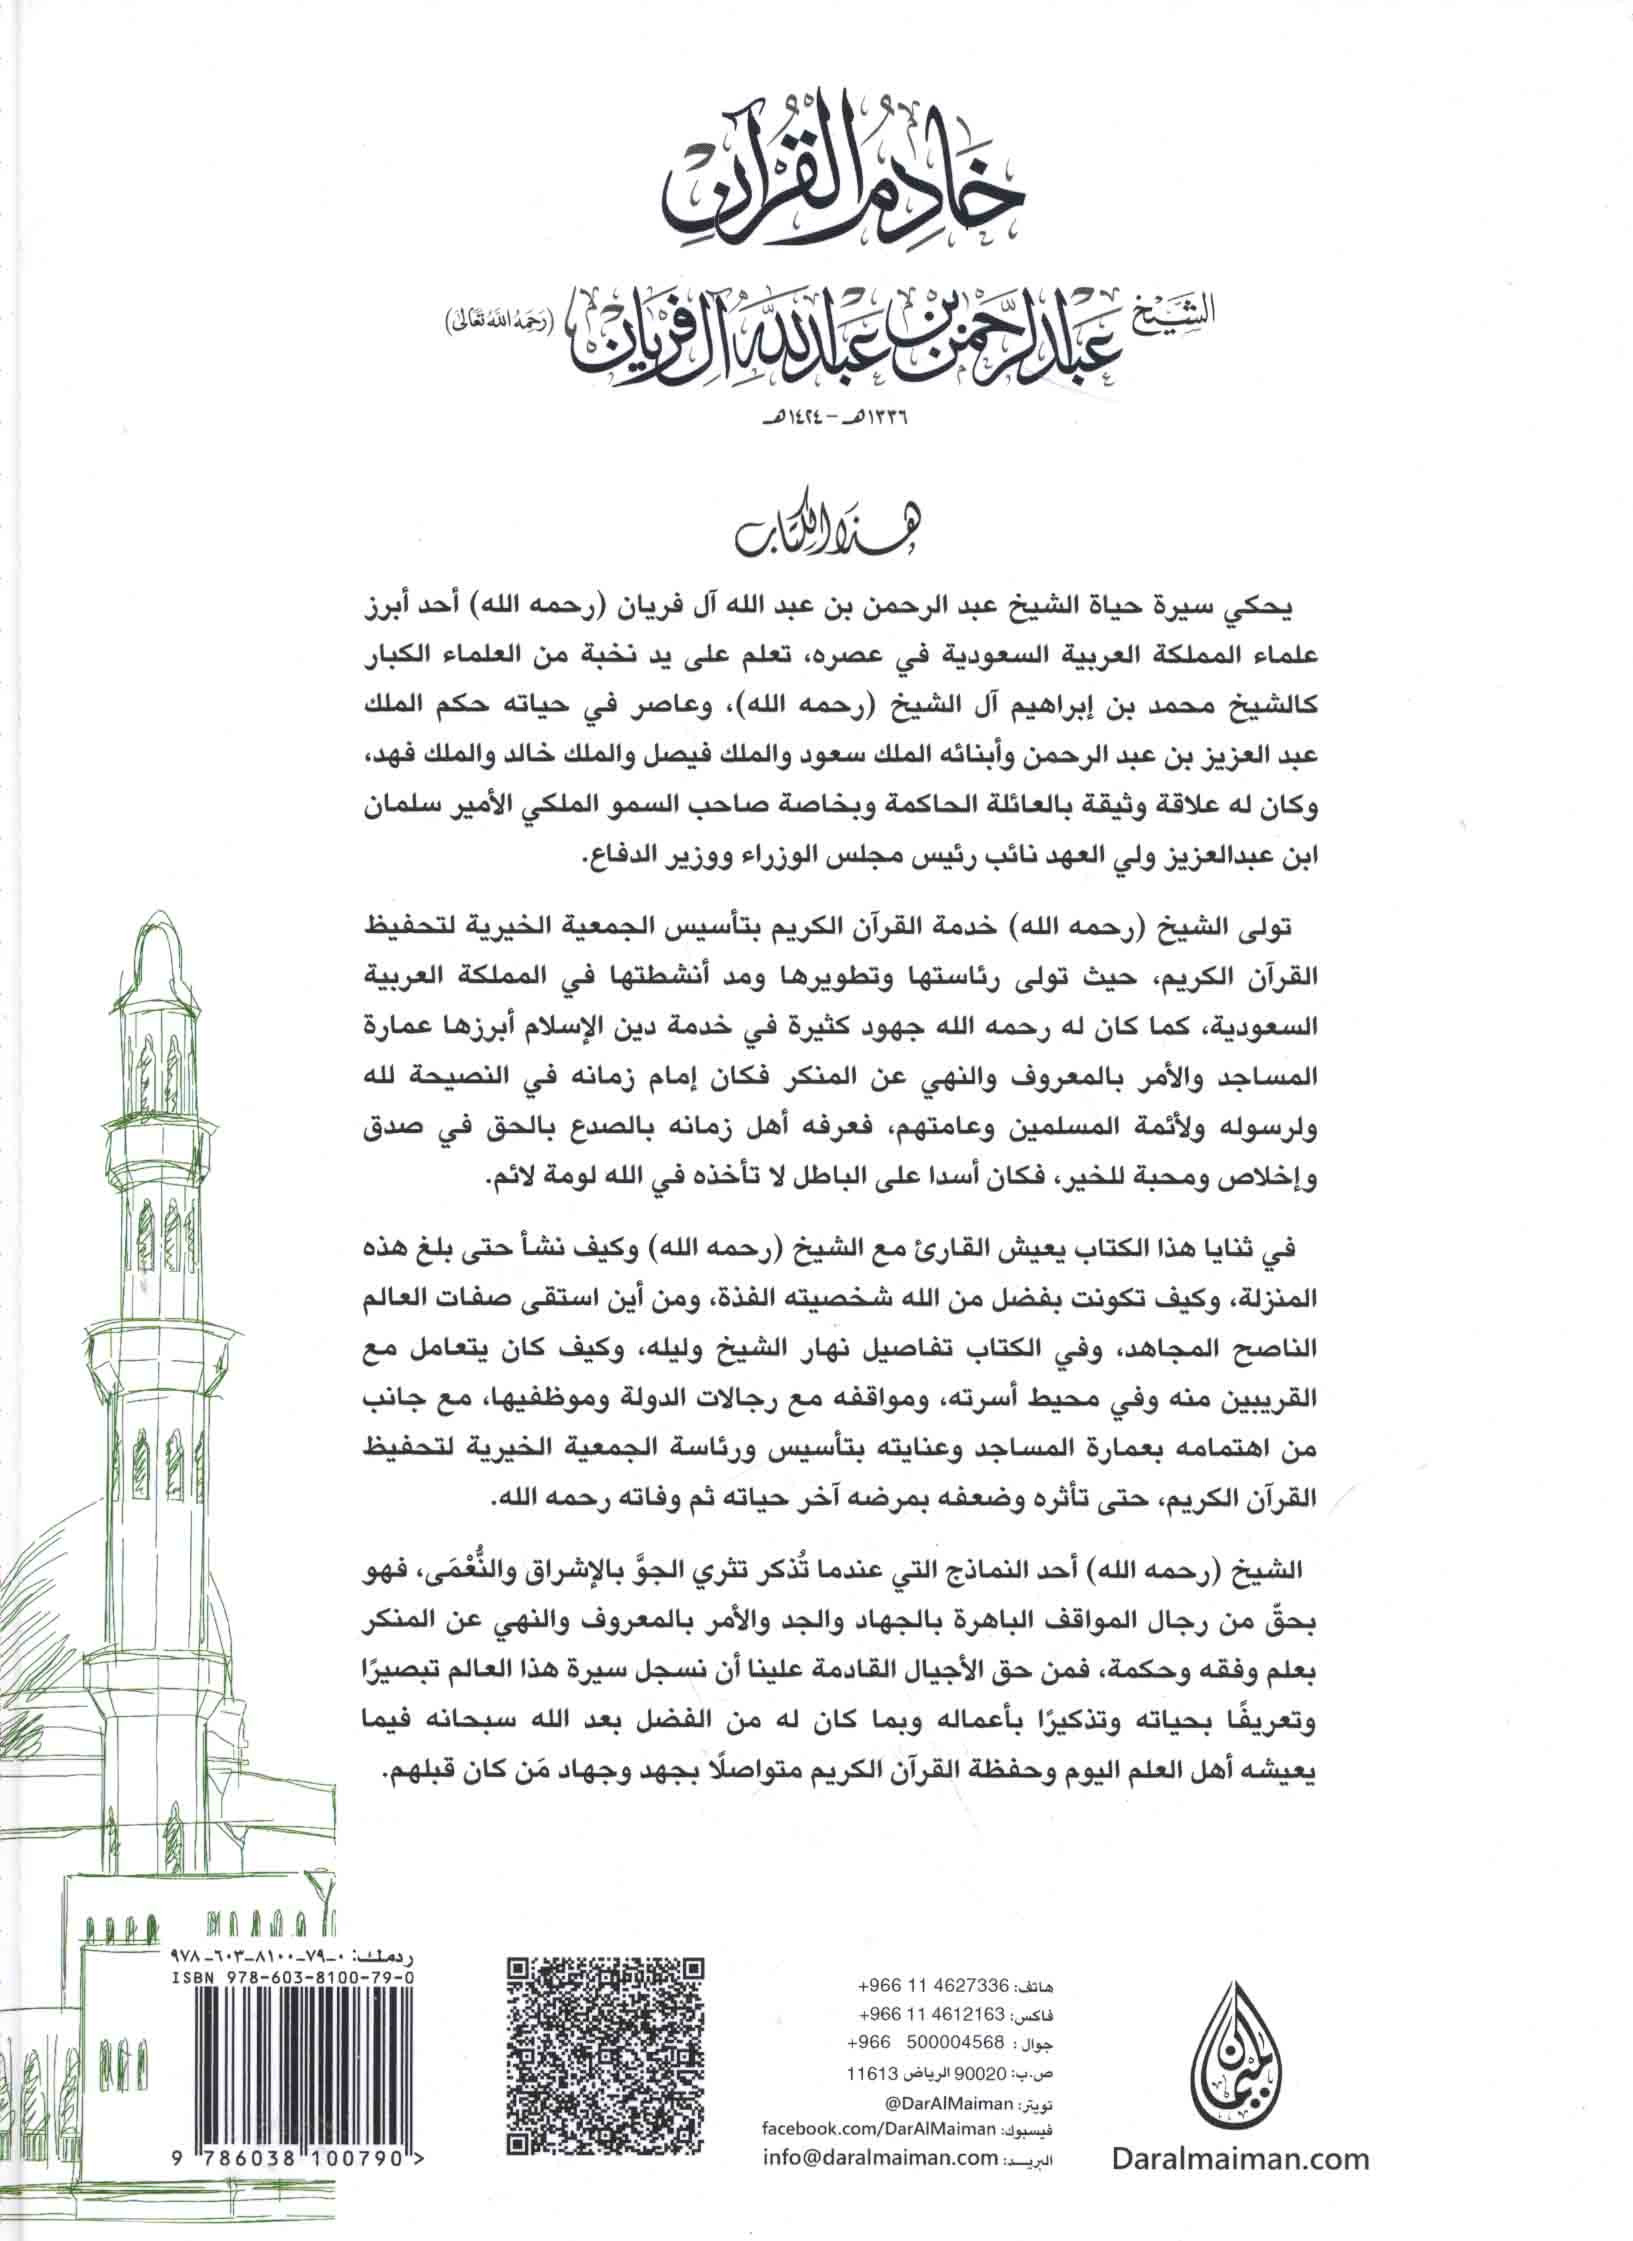 خَادِمُ القُرْآنِ
الشَّيْخ عَبْدالرَّحْمٰن بْن عَبْداللَّه آل فريَان (رَحِمَهُ اللهُ تَعَالَى)
١٣٣٦هـ – ١٤٢٤هـ
هٰذَا الكِتَاب
يحكي سيرة حياة الشيخ عبد الرحمن بن عبد الله آل فريان (رحمه الله) أحد أبرز
علماء المملكة العربية السعودية في عصره، تعلم على يد نخبة من العلماء الكبار
كالشيخ محمد بن إبراهيم آل الشيخ (رحمه الله)، وعاصر في حياته حكم الملك
عبد العزيز بن عبد الرحمن وأبنائه الملك سعود والملك فيصل والملك خالد والملك فهد،
وكان له علاقة وثيقة بالعائلة الحاكمة وبخاصة صاحب السمو الملكي الأمير سلمان
ابن عبدالعزيز ولي العهد نائب رئيس مجلس الوزراء ووزير الدفاع.
تولى الشيخ (رحمه الله) خدمة القرآن الكريم بتأسيس الجمعية الخيرية لتحفيظ
القرآن الكريم، حيث تولى رئاستها وتطويرها ومد أنشطتها في المملكة العربية
السعودية، كما كان له رحمه الله جهود كثيرة في خدمة دين الإسلام أبرزها عمارة
المساجد والأمر بالمعروف والنهي عن المنكر فكان إمام زمانه في النصيحة لله
ولرسوله ولأئمة المسلمين وعامتهم، فعرفه أهل زمانه بالصدع بالحق في صدق
وإخلاص ومحبة للخير، فكان أسدا على الباطل لا تأخذه في الله لومة لائم.
في ثنايا هذا الكتاب يعيش القارئ مع الشيخ (رحمه الله) وكيف نشأ حتى بلغ هذه
المنزلة، وكيف تكونت بفضل من الله شخصيته الفذة، ومن أين استقى صفات العالم
الناصح المجاهد، وفي الكتاب تفاصيل نهار الشيخ وليله، وكيف كان يتعامل مع
القريبين منه وفي محيط أسرته، ومواقفه مع رجالات الدولة وموظفيها، مع جانب
من اهتمامه بعمارة المساجد وعنايته بتأسيس ورئاسة الجمعية الخيرية لتحفيظ
القرآن الكريم، حتى تأثره وضعفه بمرضه آخر حياته ثم وفاته رحمه الله.
الشيخ (رحمه الله) أحد النماذج التي عندما تُذكر تثري الجوَّ بالإشراق والنُّعْمَى، فهو
بحقّ من رجال المواقف الباهرة بالجهاد والجد والأمر بالمعروف والنهي عن المنكر
بعلم وفقه وحكمة، فمن حق الأجيال القادمة علينا أن نسجل سيرة هذا العالم تبصيرًا
وتعريفًا بحياته وتذكيرًا بأعماله وبما كان له من الفضل بعد الله سبحانه فيما
يعيشه أهل العلم اليوم وحفظة القرآن الكريم متواصلًا بجهد وجهاد مَن كان قبلهم.
ردمك: ٠-٧٩-٨١٠٠-٦٠٣-٩٧٨
ISBN 978-603-8100-79-0
9 786038 100790 >
هاتف: 4627336 11 966+
فاكس: 4612163 11 966+
جوال : 500004568 966+
ص.ب: 90020 الرياض 11613
تويتر: DarAlMaiman@
فيسبوك: facebook.com/DarAlMaiman
البريـد: info@daralmaiman.com
الميمان
Daralmaiman.com